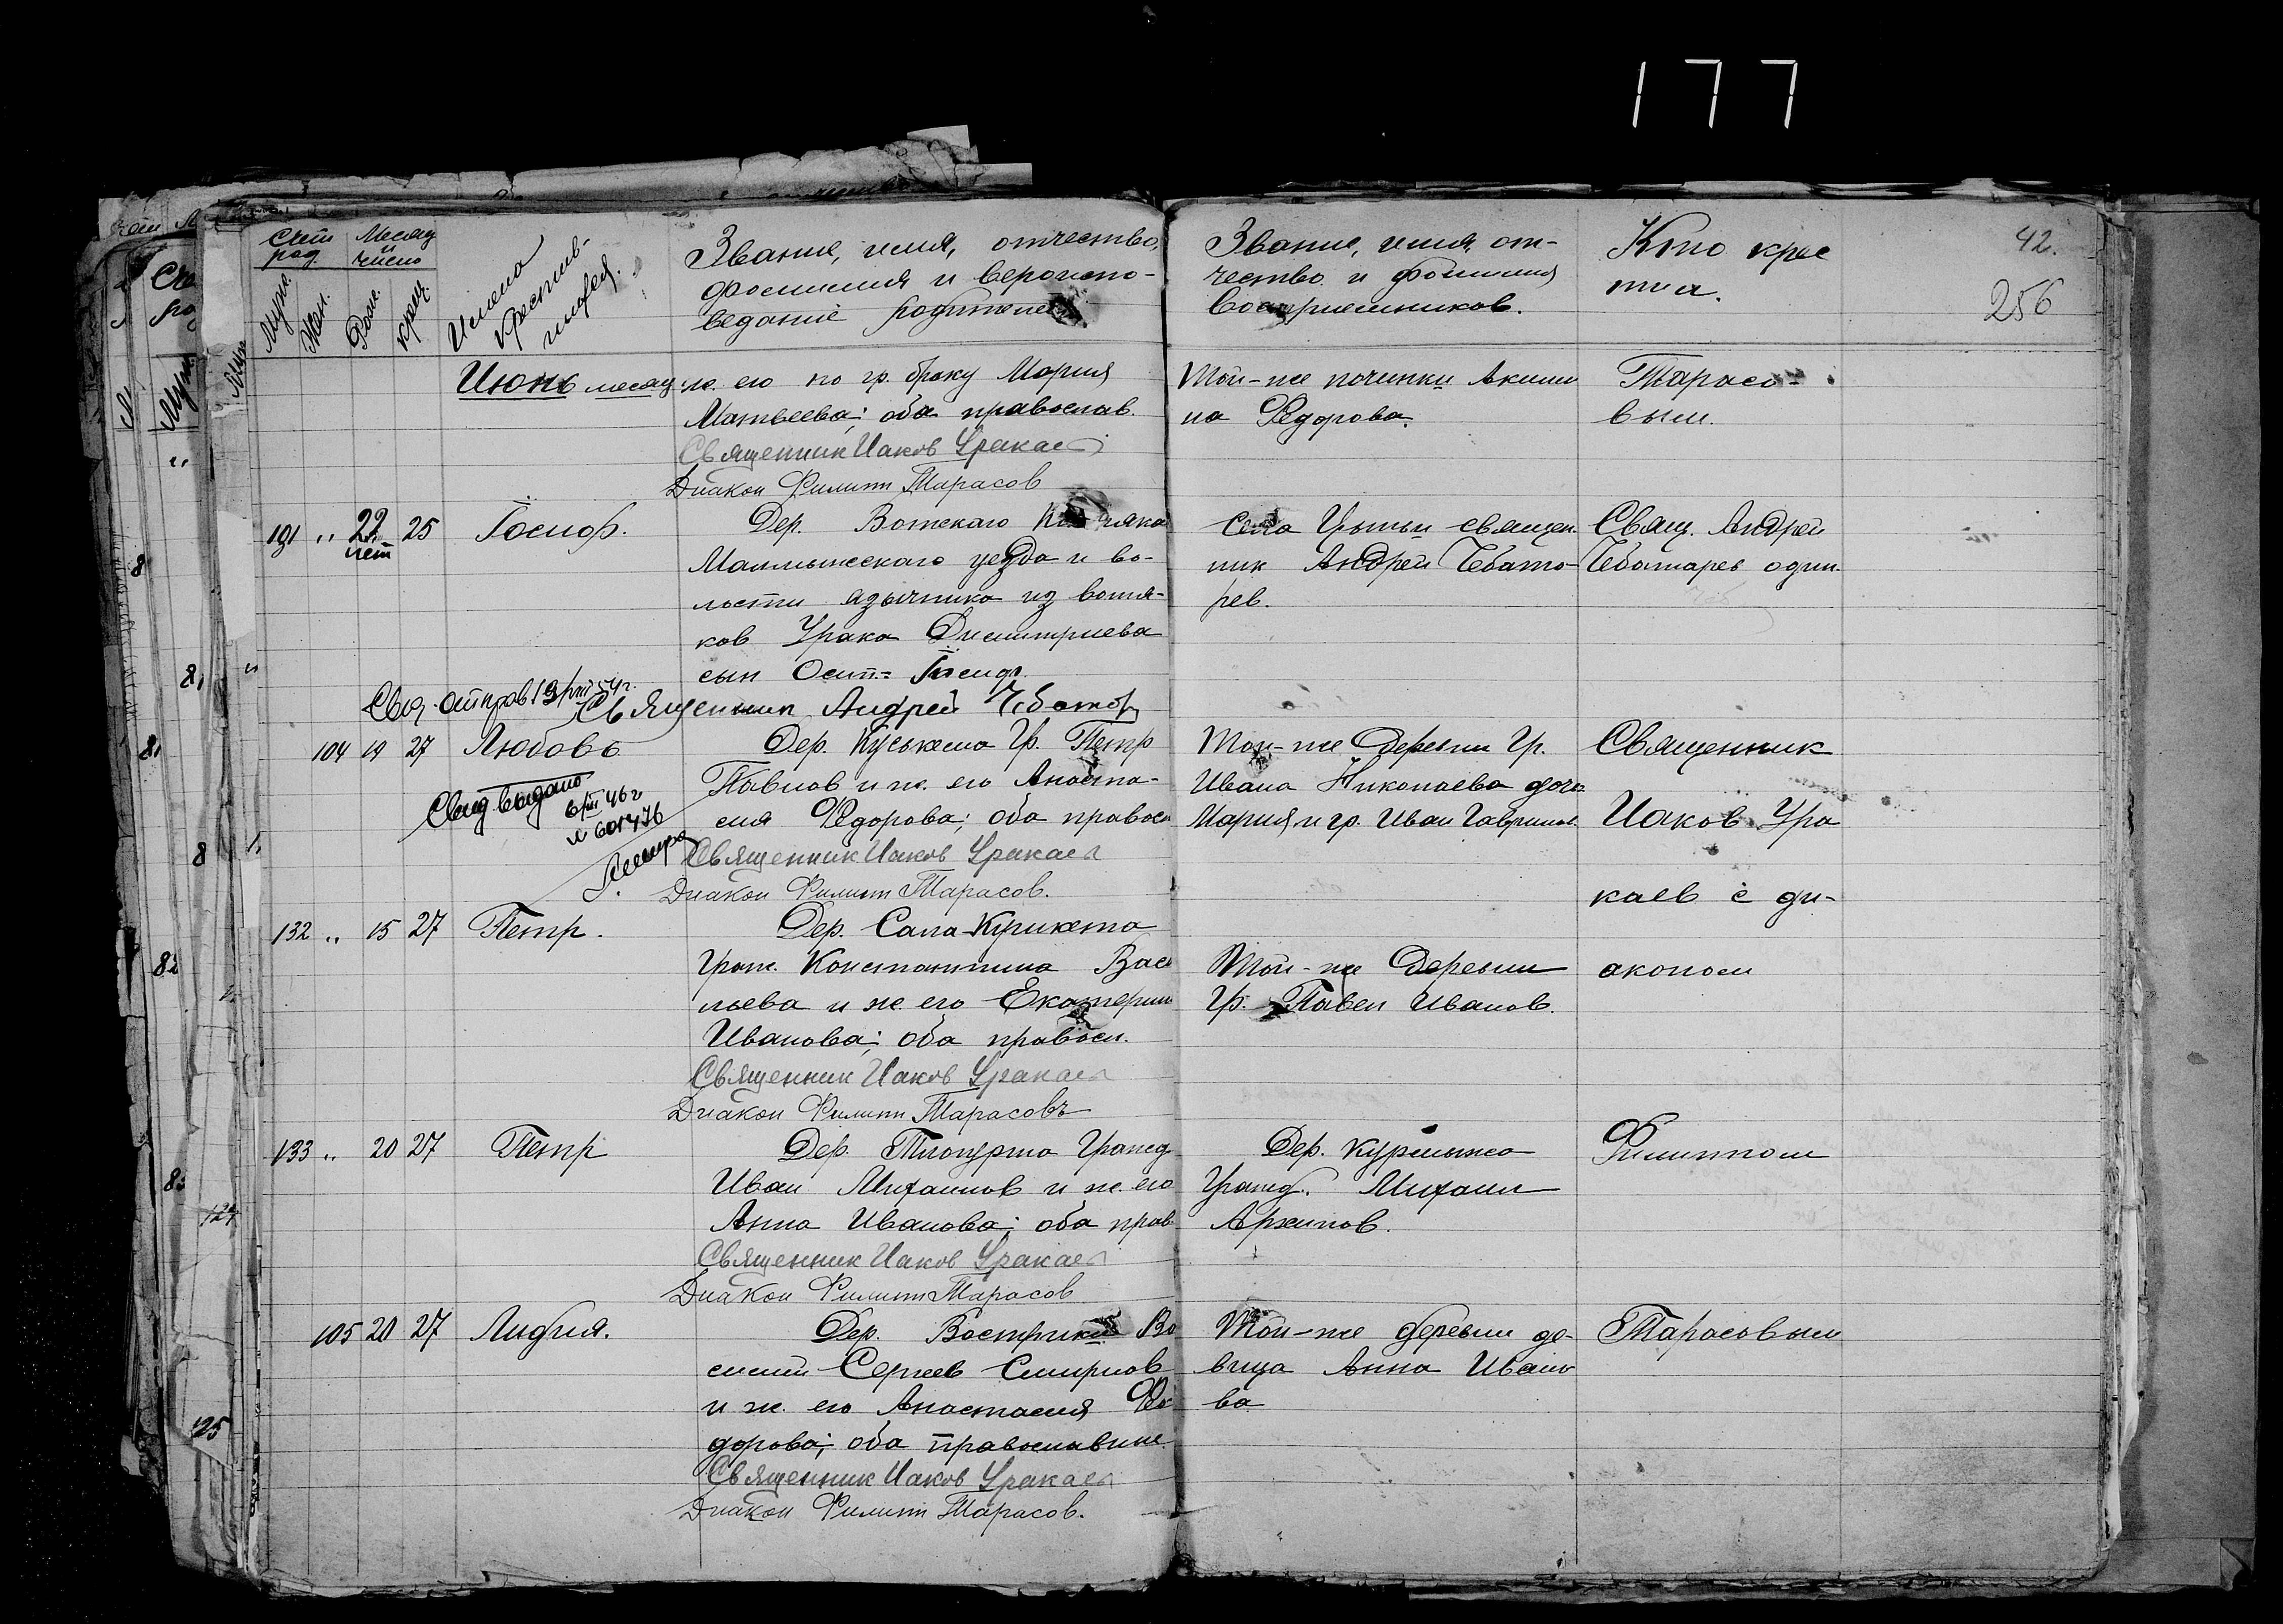 177
42.
256
Счет род.
Месяц и число
Муж.
Жен.
Рожд.
крещ.
Имена крестив-
шихся.
Звание, имя, отчество,
фамилия и вероиспо-
ведание родителей
Звание, имя, от-
чество и фамилия
восприемников.
Кто крес
тил.
Июнь месяц
ж. его по гр. браку Мария
Матвеева; оба православ.
Священник Иаков Уракаев
Диакон Филипп Тарасов
Той-же починки Акили
на Федорова.
Тарасо-
вым.
131 " 22 лет 25 Іосиф.
Дер. Вотскаго
Малмыжскаго уезда и во-
лости язычника из вотя-
ков Урака Димитриева
сын Осип - Іосиф.
Священник Андрей Чеботар
Села Цыпьи священ
ник Андрей Чебота-
рев.
Свящ. Андрей
Чеботарев один.
104 19 27 Любовь
Свид. выдано
6/III 46 г
Дер. Куськема Гр. Петр
Павлов и ж. его Анаста-
сия Федорова; оба правосл
Священник Иаков Уракаев
Диакон Филипп Тарасов.
Той-же деревни Гр.
Ивана Николаева дочь
Мария и гр. Иван Гаврилов.
Священник
Иаков Ура
каев с ди-
132 " 15 27 Петр.
Дер. Сала-Кушкета
Граж. Константина Васи
льева и ж. его Екатерина
Иванова; оба правосл.
Священник Иаков Уракаев
Диакон Филипп Тарасовъ
Той-же Деревни
Гр. Павел Иванов.
аконом
133 " 20 27 Петр
Дер. Гражд
Иван Михаилов и ж. его
Анна Иванова; оба прав
Священник Иаков Уракаев
Диакон Филипп Тарасов
Дер.
Гражд. Михаил
Архипов.
Филиппом
105 20 27 Лидия.
Дер. Вострики Ва
силий Сергеев Смирнов
и ж. его Анастасия Фе
дорова; оба православные
Священник Иаков Уракаев
Диакон Филипп Тарасов.
Той-же деревни де-
вица Анна Ивано
ва
Тарасовым